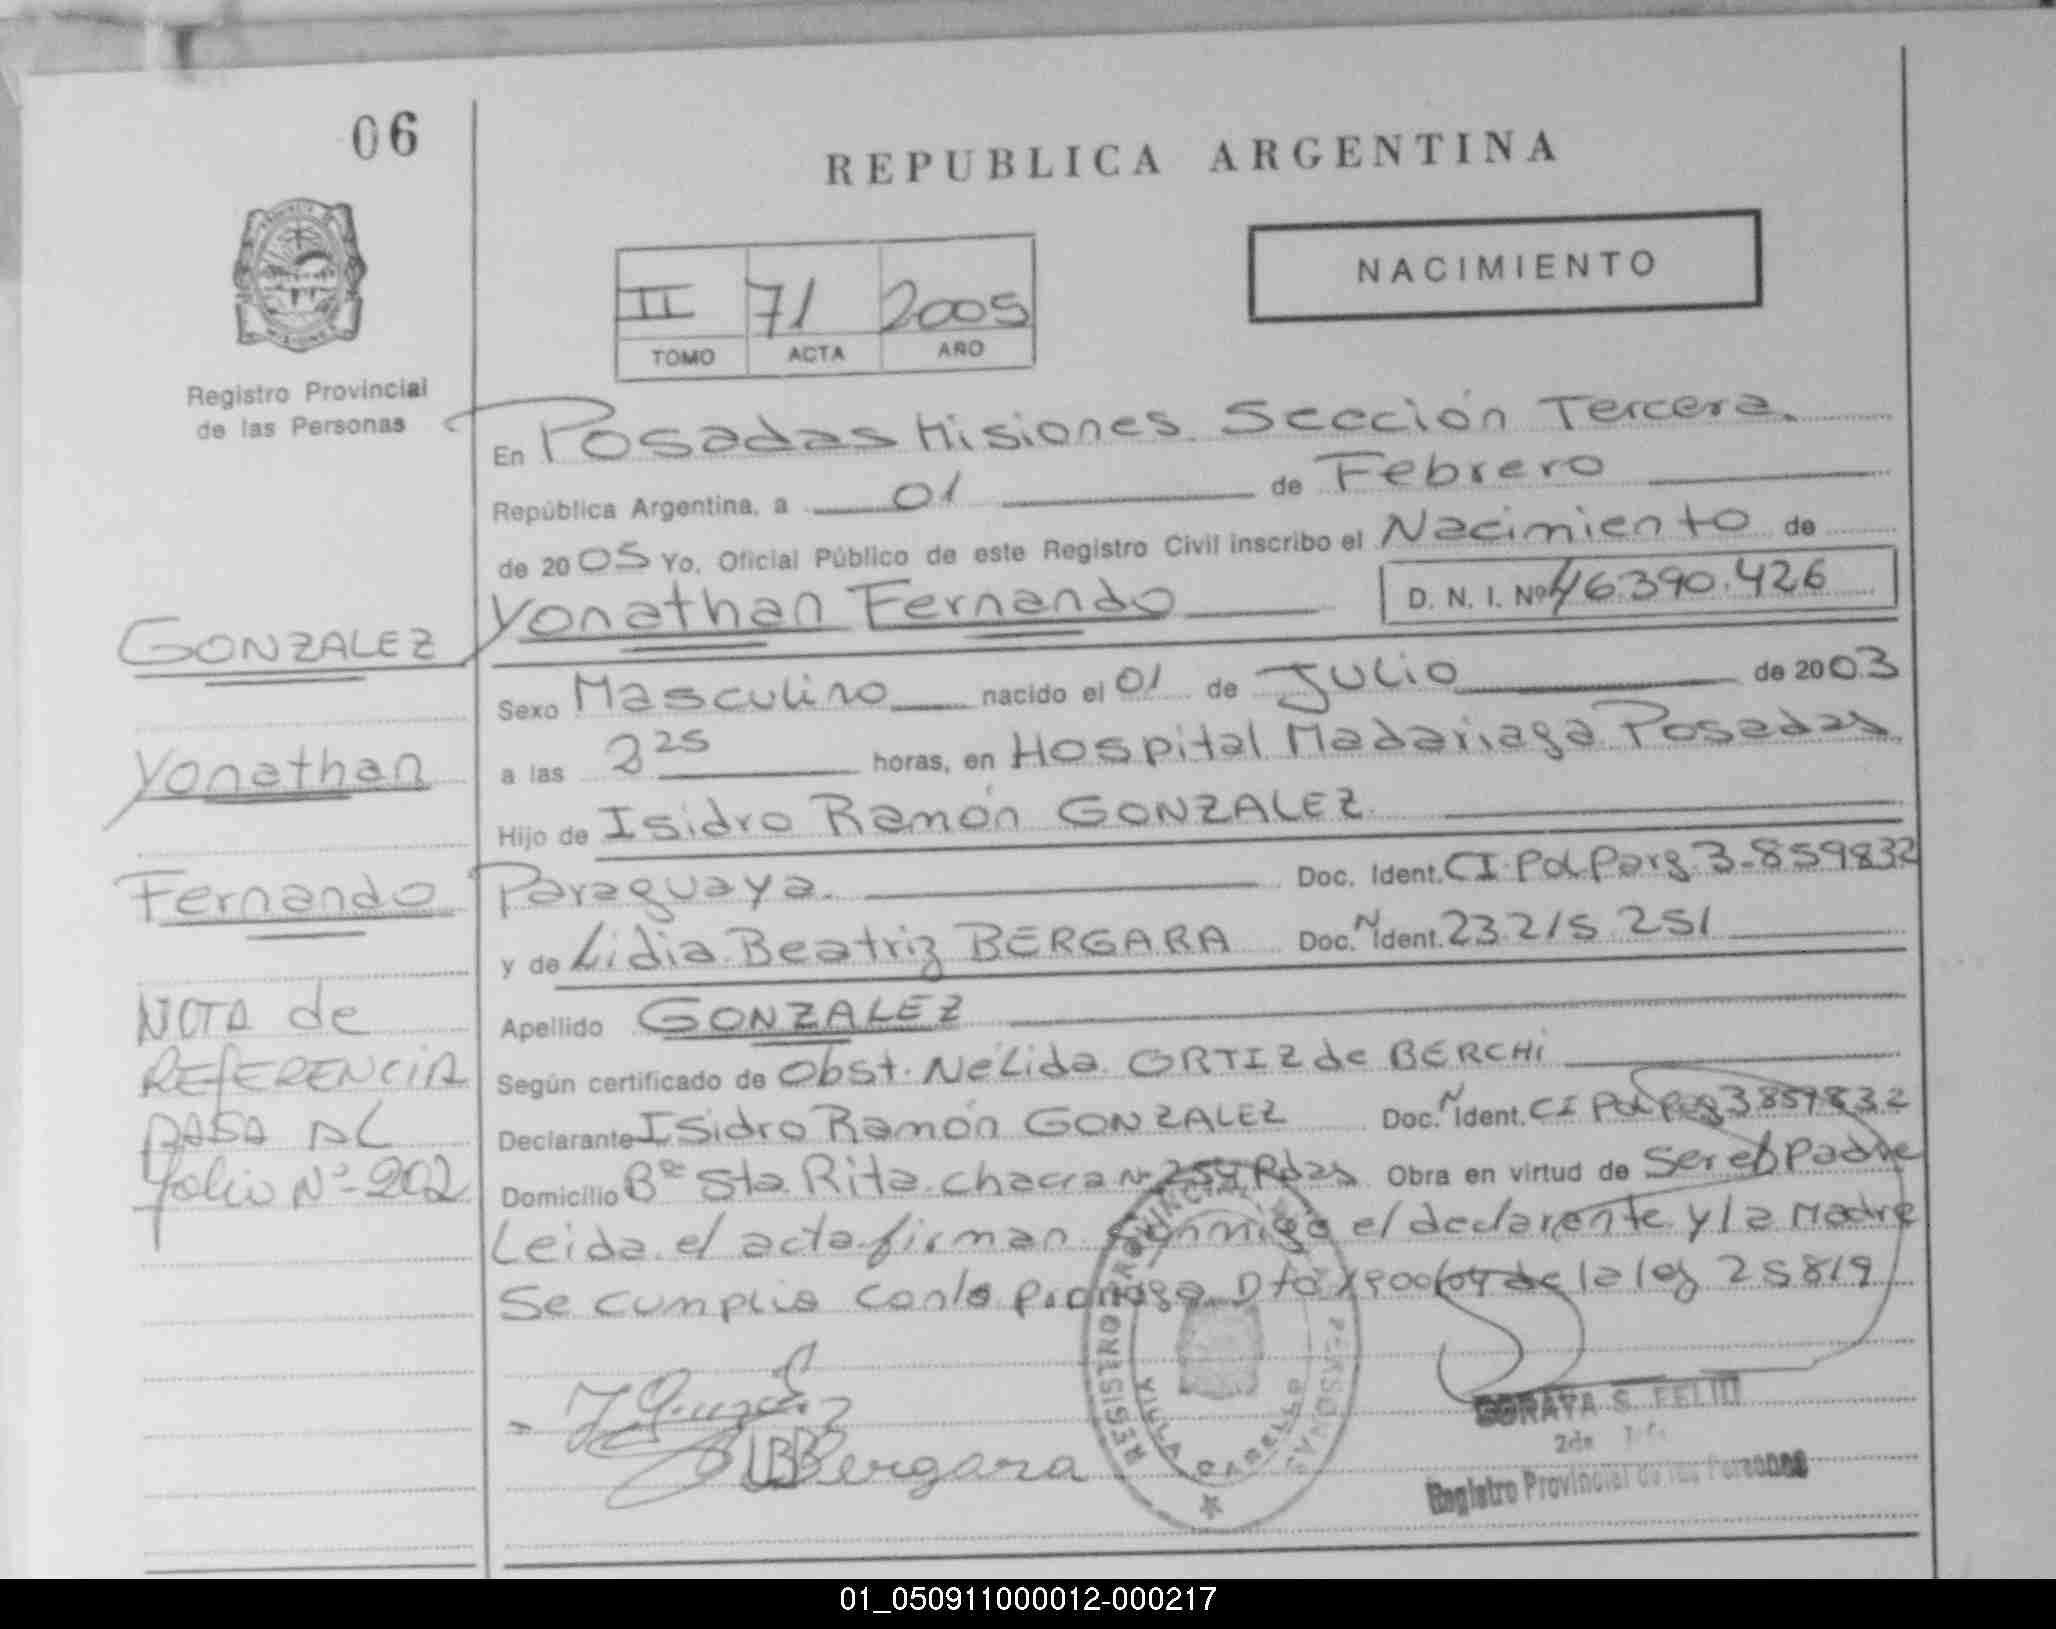 06
REPUBLICA ARGENTINA
NACIMIENTO
II 71 2005
TOMO ACTA AÑO
Registro Provincial
de las Personas
En Posadas Misiones Sección Tercera.
República Argentina, a 01 de Febrero
de 2005 Yo, Oficial Público de este Registro Civil inscribo el Nacimiento de
Yonathan Fernando D. N. I. Nº 46.390.426
GONZALEZ
Sexo Masculino nacido el 01 de Julio de 2003
Yonathan
a las 2 25 horas, en Hospital Madariaga Posadas
Hijo de Isidro Ramón GONZALEZ.
Fernando
Paraguaya. Doc. Ident. CI Pol Parg 3-859832
y de Lidia Beatriz BERGARA Doc. N Ident. 23.215.251
NOTA de
REFERENCIA
PASA AL
folio Nº 202
Apellido GONZALEZ
Según certificado de Obst. Nélida ORTIZ de BERCHI
Declarante Isidro Ramón GONZALEZ Doc. N Ident. CI Pol Parg 3859832
Domicilio Bº Sta Rita chacra Nº 254 Pdas Obra en virtud de Ser el Padre
Leida el acta firman conmigo el declarante y la Madre
Se cumplio con la prorroga Dto 1900/04 de la ley 25819
LBBergara
REGISTRO PROVINCIAL PERSONAS
VILLA CABELLO
SORAYA S. FELIU
Registro Provincial de las Personas
01_050911000012-000217